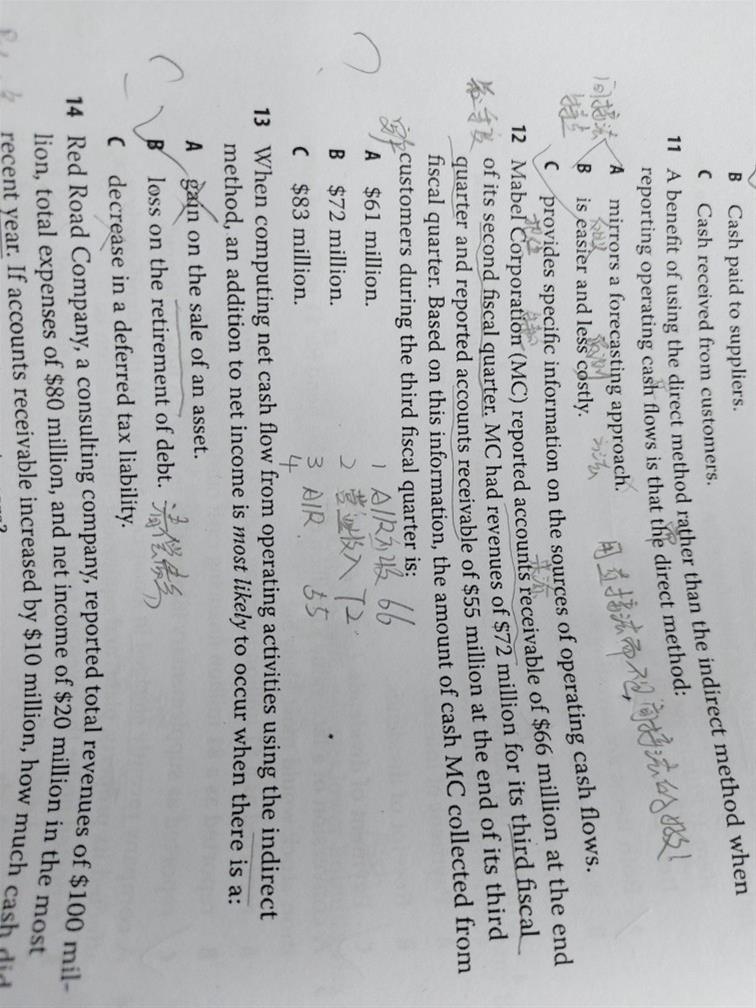 B Cash paid to suppliers.
C Cash received from customers.
11 A benefit of using the direct method rather than the indirect method when
reporting operating cash flows is that the direct method:
用直接法而不想间接法的
A mirrors a forecasting approach.
方法
间接法
B is easier and less costly.
C provides specific information on the sources of operating cash flows.
12 Mabel Corporation (MC) reported accounts receivable of $66 million at the end
of its second fiscal quarter. MC had revenues of $72 million for its third fiscal
quarter and reported accounts receivable of $55 million at the end of its third
fiscal quarter. Based on this information, the amount of cash MC collected from
customers during the third fiscal quarter is:
A $61 million.
B $72 million.
C $83 million.
1 A/R 66
2 营业收入 72
3 A/R 55
4
13 When computing net cash flow from operating activities using the indirect
method, an addition to net income is most likely to occur when there is a:
A gain on the sale of an asset.
B loss on the retirement of debt.
C decrease in a deferred tax liability.
14 Red Road Company, a consulting company, reported total revenues of $100 mil-
lion, total expenses of $80 million, and net income of $20 million in the most
recent year. If accounts receivable increased by $10 million, how much cash did